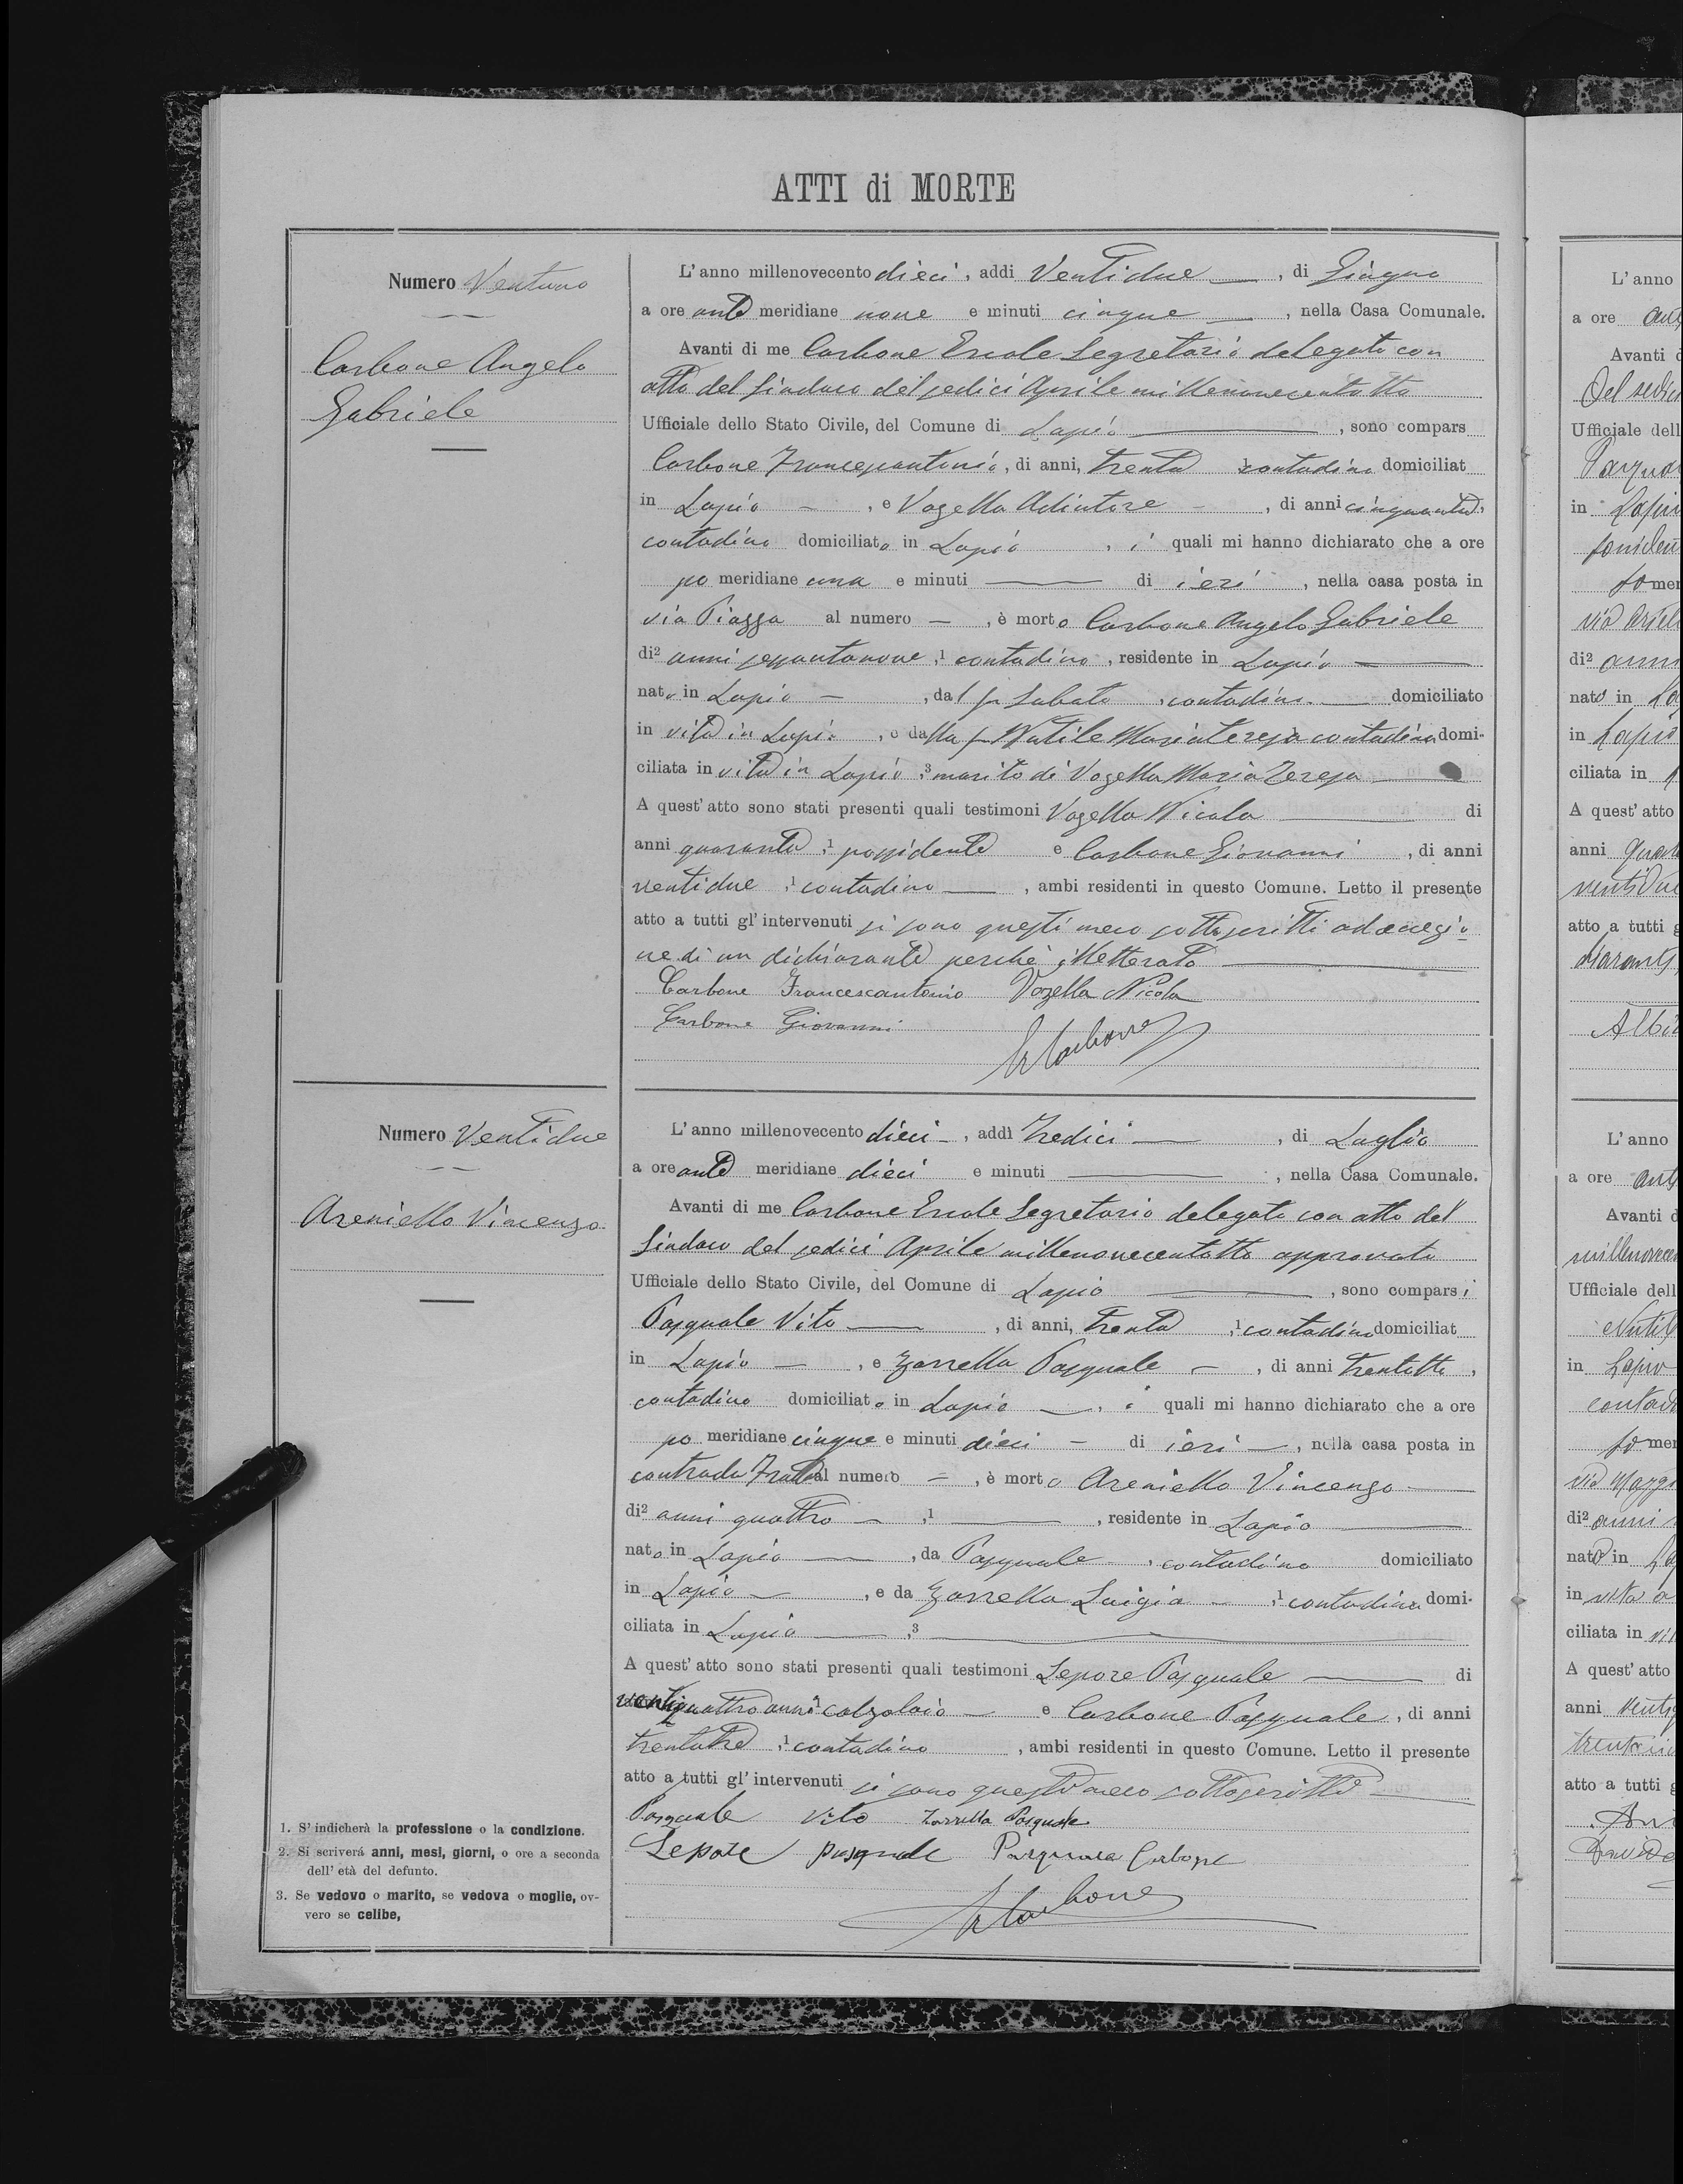 ATTI di MORTE
Numero Ventuno
Carbone Angelo
Gabriele
L'anno millenovecento dieci, addi Ventidue —, di Giugno
a ore ante meridiane nove e minuti cinque —, nella Casa Comunale.
Avanti di me Carbone Ercole Segretario delegato con
atto del Sindaco del sedici Aprile millenovecentotto
Ufficiale dello Stato Civile, del Comune di Lapio —, sono compars
Carbone Francescantonio, di anni, trenta 1 contadino domiciliat
in Lapio —, e Vozella Adiutore —, di anni cinquanta,
contadino domiciliato in Lapio, i quali mi hanno dichiarato che a ore
po meridiane una e minuti — di ieri, nella casa posta in
via Piazza al numero —, è morto Carbone Angelo Gabriele
di2 anni sessantanove,1 contadino, residente in Lapio —
nato in Lapio —, dal fu Sabato, contadino — domiciliato
in vita in Lapio, e dalla fu Nutile Mariateresa contadina domi-
ciliata in vita in Lapio,3 marito di Vozella Maria Teresa —
A quest' atto sono stati presenti quali testimoni Vozella Nicola — di
anni quaranta,1 possidente e Carbone Giovanni, di anni
ventidue,1 contadino —, ambi residenti in questo Comune. Letto il presente
atto a tutti gl' intervenuti si sono questi meco sottoscritti ad eccezio
ne di un dichiarante perchè illetterato —
Carbone Francescantonio Vozella Nicola
Carbone Giovanni
E Carbone
Numero Ventidue
Areniello Vincenzo
L'anno millenovecento dieci —, addì Tredici —, di Luglio
a ore ante meridiane dieci e minuti —, nella Casa Comunale.
Avanti di me Carbone Ercole Segretario delegato con atto del
Sindaco del sedici Aprile millenovecentotto approvato
Ufficiale dello Stato Civile, del Comune di Lapio —, sono comparsi
Pasquale Vito —, di anni, trenta,1 contadino domiciliat
in Lapio —, e Zarrella Pasquale —, di anni trentotto,
contadino domiciliato in Lapio —, i quali mi hanno dichiarato che a ore
po meridiane cinque e minuti dieci — di ieri —, nella casa posta in
contrada al numero —, è morto Areniello Vincenzo —
di2 anni quattro —,1 —, residente in Lapio —
nato in Lapio —, da Pasquale, contadino domiciliato
in Lapio —, e da Zarrella Luigia —,1 contadina domi-
ciliata in Lapio —,3 —
A quest' atto sono stati presenti quali testimoni Lepore Pasquale — di
ventiquattro anni 1 calzolaio — e Carbone Pasquale, di anni
trentatre,1 contadino, ambi residenti in questo Comune. Letto il presente
atto a tutti gl' intervenuti si sono questi meco sottoscritti —
Pasquale Vito Zarrella Pasquale
Lepore Pasquale Pasquale Carbone
E Carbone
1. S' indicherà la professione o la condizione.
2. Si scriverá anni, mesi, giorni, o ore a seconda
dell' età del defunto.
3. Se vedovo o marito, se vedova o moglie, ov-
vero se celibe,
L'anno
a ore ant
Avanti d
Del sedic
Ufficiale dell
Pasqua
in Lapio
mer
di2 anni
nato in La
in Lapio
ciliata in
A quest' atto
anni quara
ventidue
atto a tutti g
L'anno
a ore ant
Avanti d
millenovecen
Ufficiale dell
Nutil
in Lapio
contad
po mer
via Mazzi
di2 anni
nato in La
in vita
ciliata in vi
A quest' atto
anni venti
atto a tutti g
Davide